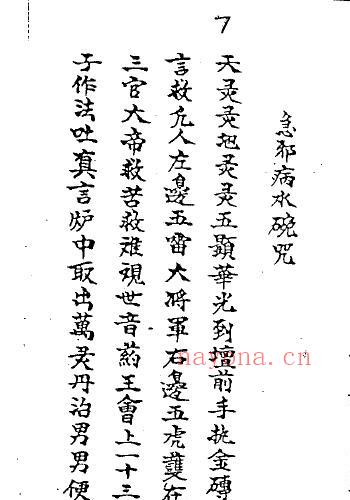 7
急邪病水碗咒
天灵灵地灵灵五顯華光到壇前手金磚
言救凡人左邊五雷大將軍右邊五虎護在
三官大帝救苦救難視世音葯王會上一十三
子作法吐真言炉中取出萬灵丹治男男便
nayona.cn